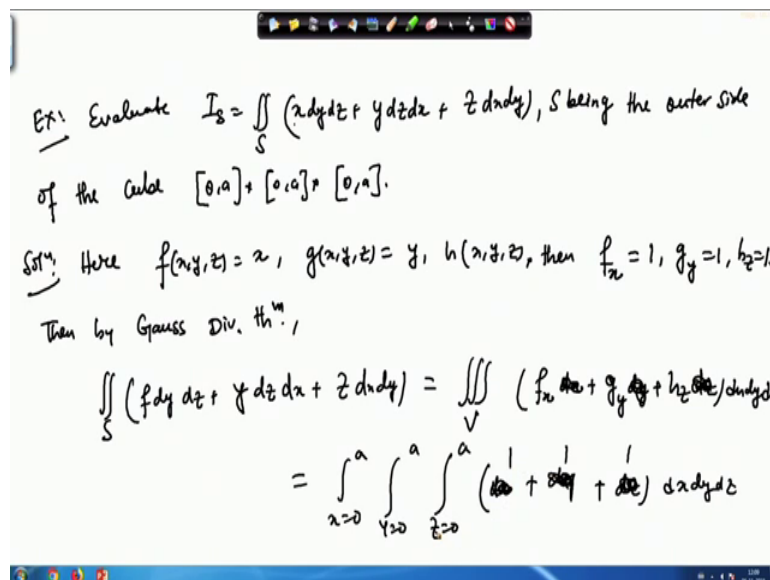 Ex: Evaluate I_S = ∬_S (x dy dz + y dz dx + z dx dy), S being the outer side
of the cube [0,a] * [0,a] * [0,a].
Solⁿ: Here f(x,y,z) = x, g(x,y,z) = y, h(x,y,z), then f_x = 1, g_y = 1, h_z = 1.
Then by Gauss Div. thᵐ.,
∬_S (f dy dz + y dz dx + z dx dy) = ∭_V (f_x + g_y + h_z) dx dy d
= ∫_{x=0}^{a} ∫_{y=0}^{a} ∫_{z=0}^{a} (1 + 1 + 1) dx dy dz